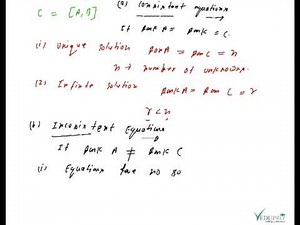 C = [A, B]
(a) Consistent equations
If Rank A = Rank C.
(i) Unique solution Rank A = Rank C = n
n → number of unknowns.
(2) Infinite solution Rank A = Rank C = r
r < n
(b) Inconsistent Equations
If Rank A ≠ Rank C
(i) Equations have no so
VEDUPRO